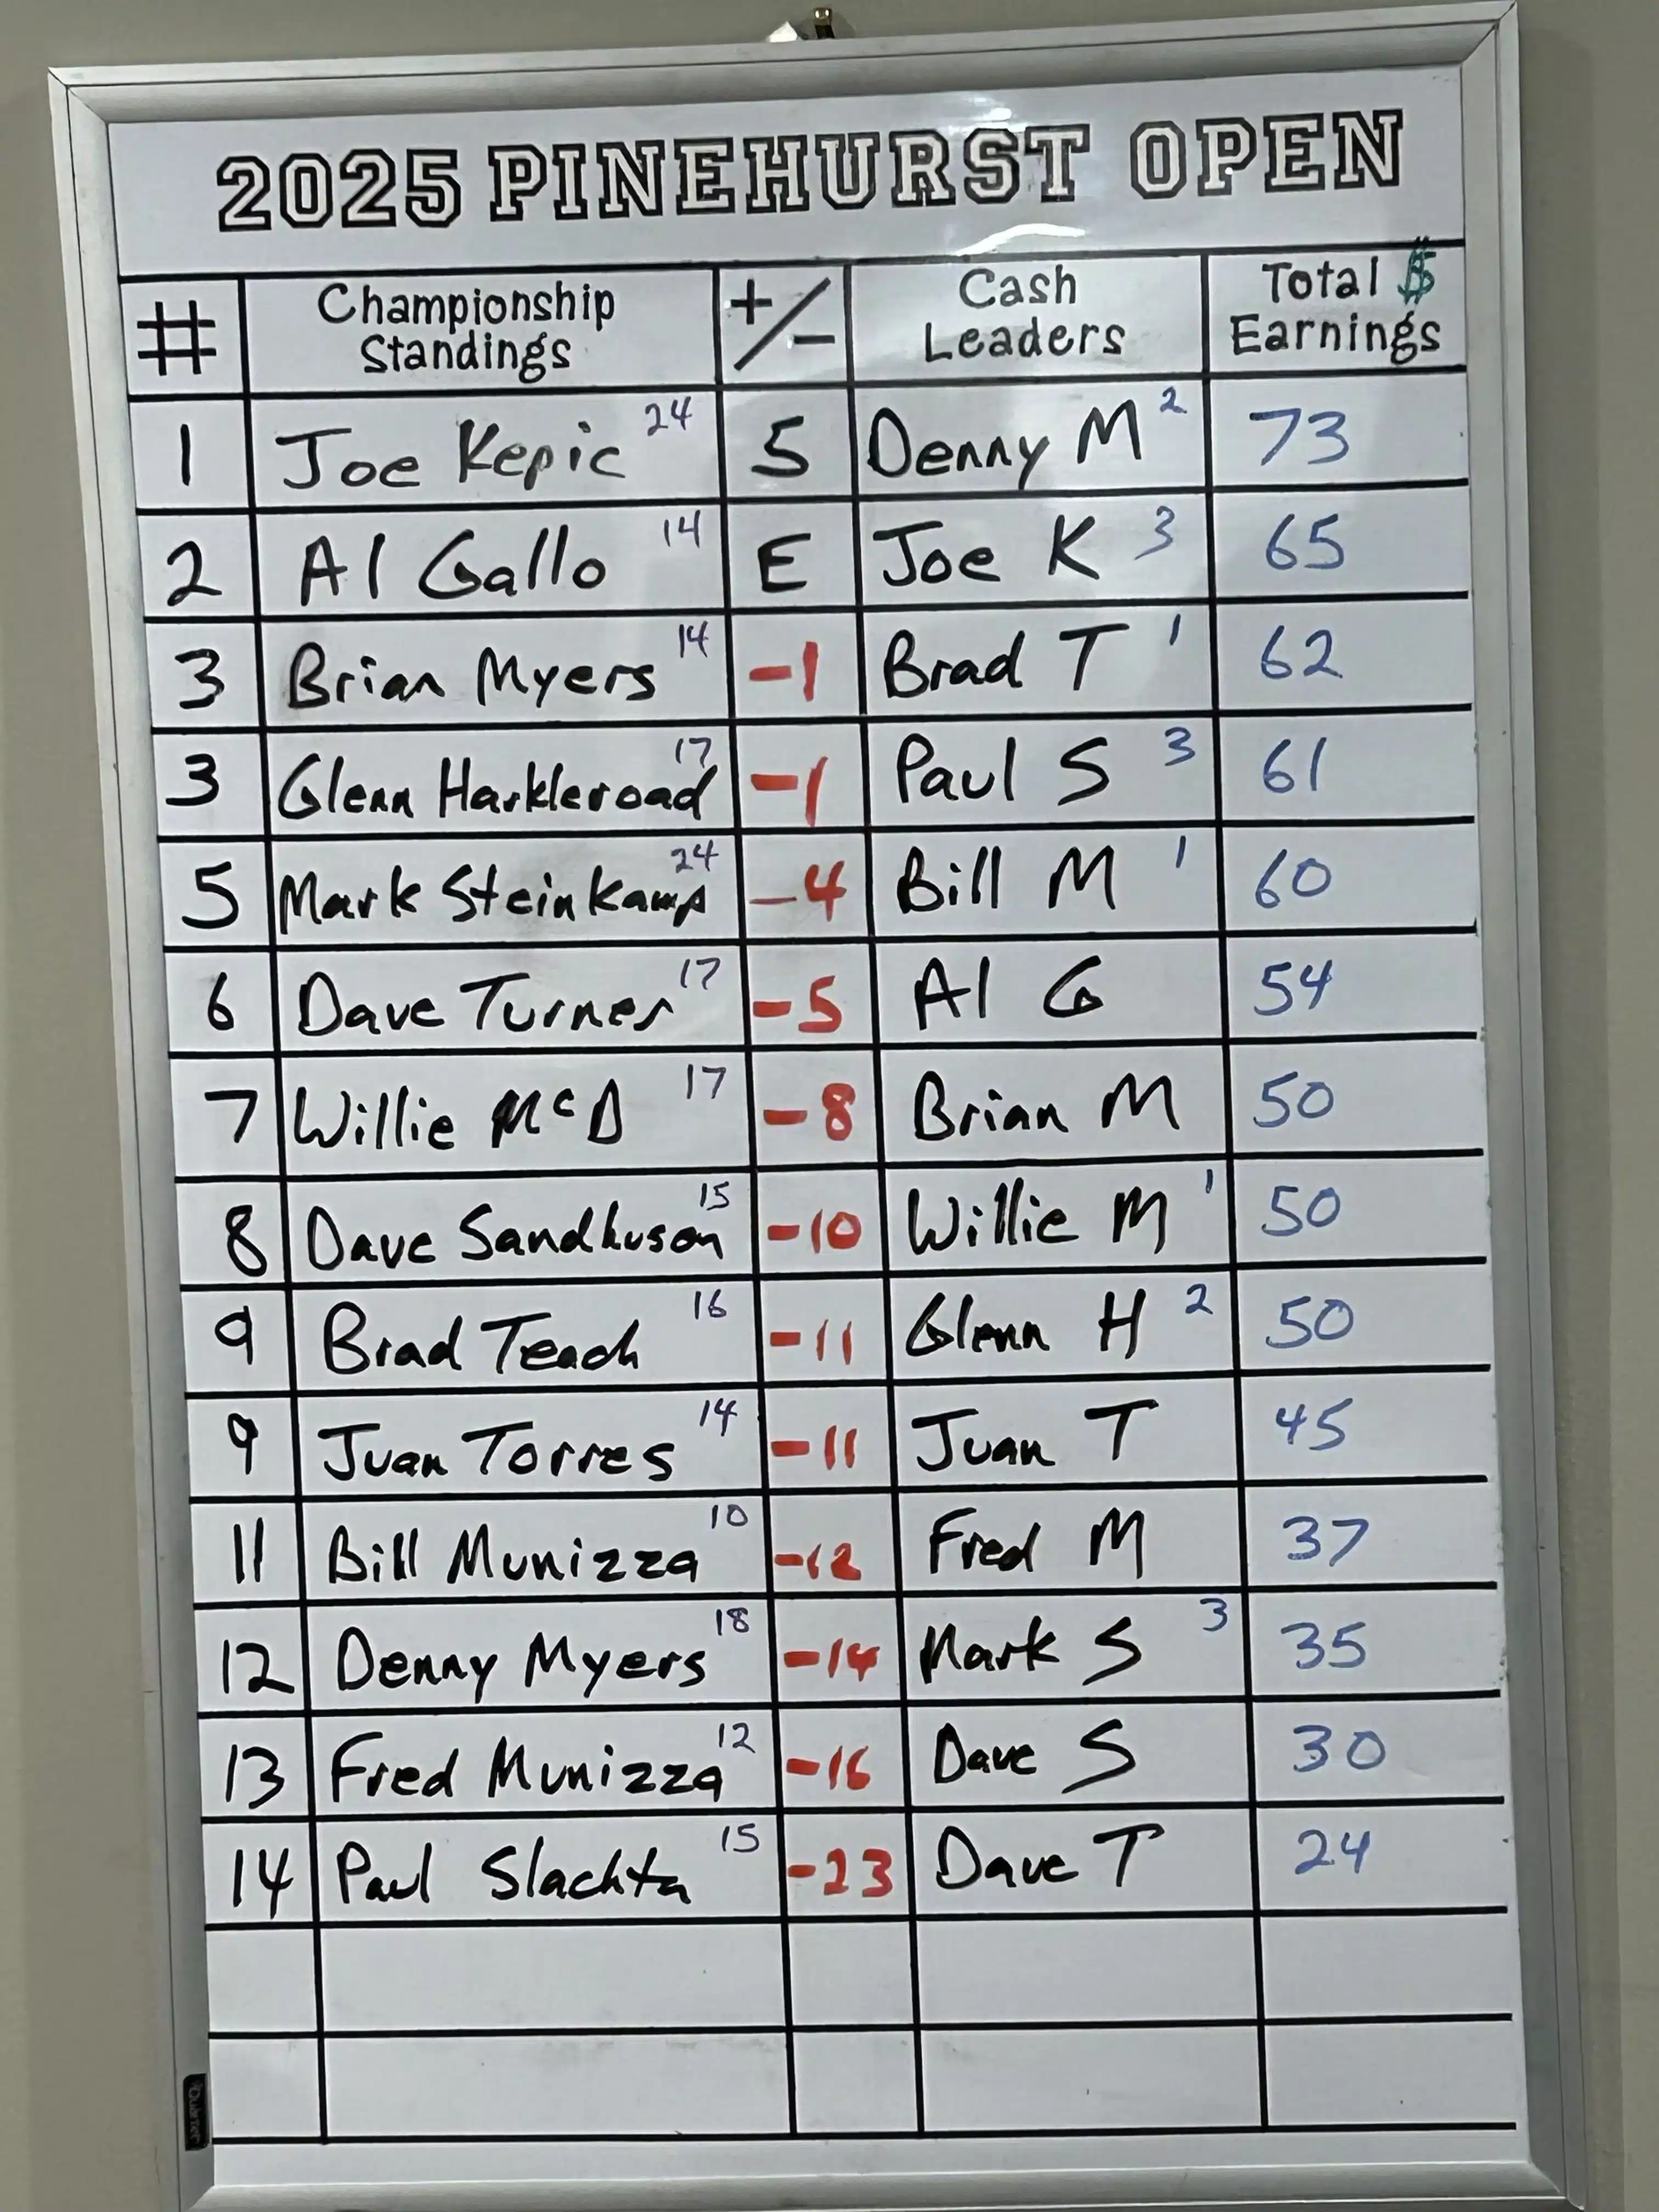 2025 PINEHURST OPEN
# Championship Standings +/- Cash Leaders Total $ Earnings
1 Joe Kepic 24 5 Denny M 2 73
2 Al Gallo 14 E Joe K 3 65
3 Brian Myers 14 -1 Brad T 1 62
3 Glenn Harkleroad 17 -1 Paul S 3 61
5 Mark Steinkamp 24 -4 Bill M 1 60
6 Dave Turner 17 -5 Al G 54
7 Willie McD 17 -8 Brian M 50
8 Dave Sandhuson 15 -10 Willie M 1 50
9 Brad Teach 16 -11 Glenn H 2 50
9 Juan Torres 14 -11 Juan T 45
11 Bill Munizza 10 -12 Fred M 37
12 Denny Myers 18 -14 Mark S 3 35
13 Fred Munizza 12 -16 Dave S 30
14 Paul Slachta 15 -23 Dave T 24
Quartet